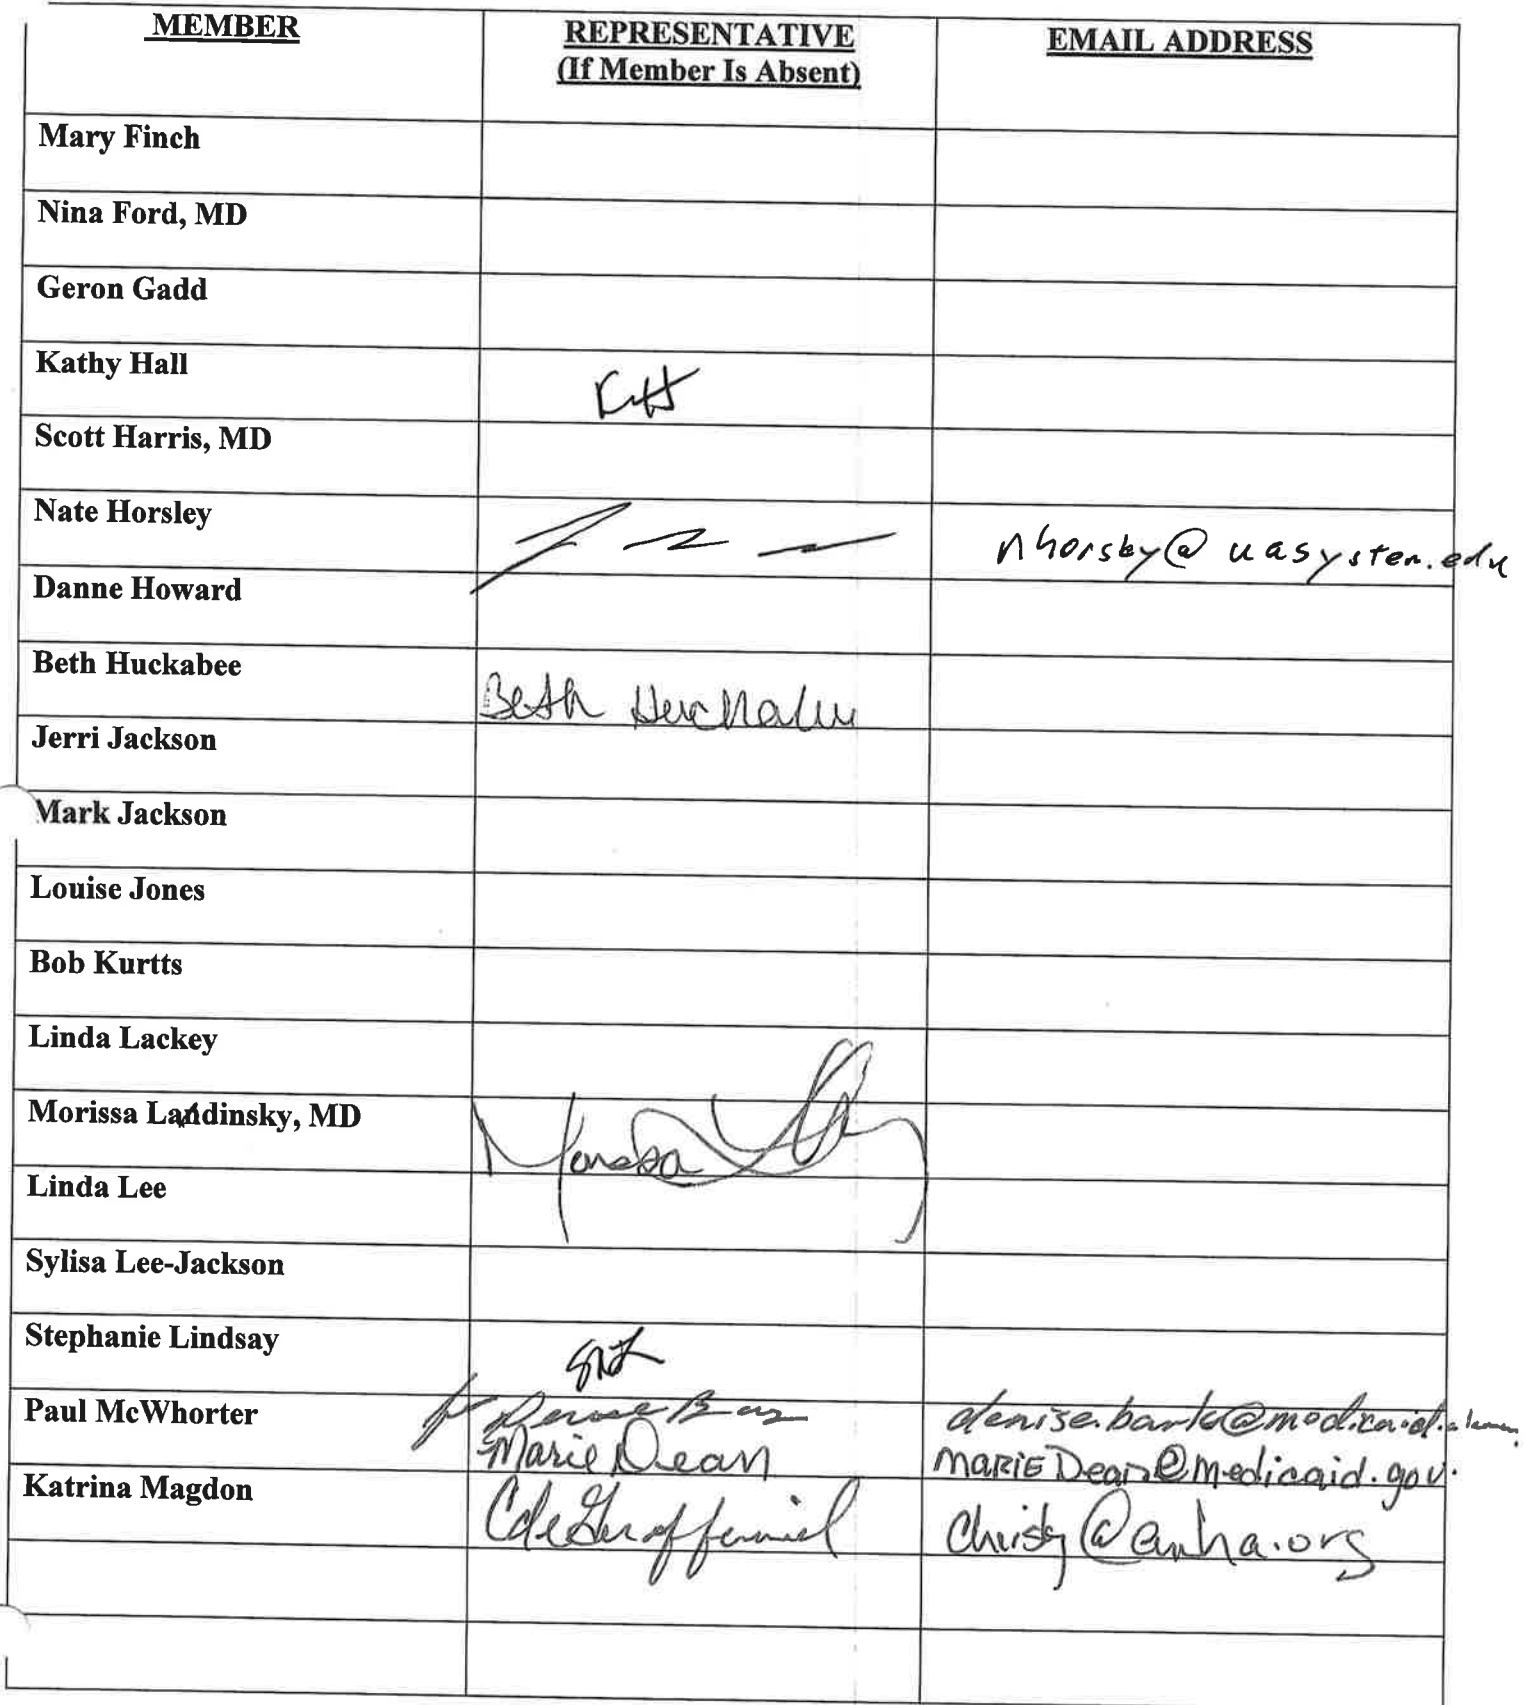 MEMBER REPRESENTATIVE EMAIL ADDRESS
(If Member Is Absent)
Mary Finch
Nina Ford, MD
Geron Gadd
Kathy Hall
Scott Harris, MD
Nate Horsley nhorsley@uasystem.edu
Danne Howard
Beth Huckabee Beth Huckabee
Jerri Jackson
Mark Jackson
Louise Jones
Bob Kurtts
Linda Lackey
Morissa Landinsky, MD
Linda Lee
Sylisa Lee-Jackson
Stephanie Lindsay
Paul McWhorter
Marie Dean MARIE Dean@medicaid.gov.
Katrina Magdon Christy@anha.org